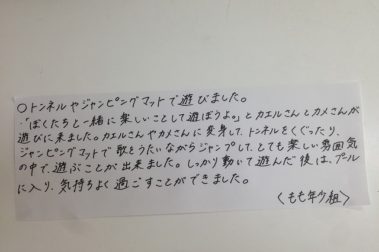 ○トンネルやジャンピングマットで遊びました。
・「ぼくたちと一緒に楽しいことして遊ぼうよ。」とカエルさんとカメさんが
遊びに来ました。カエルさんやカメさんに変身して、トンネルをくぐったり、
ジャンピングマットで歌をうたいながらジャンプして、とても楽しい雰囲気
の中で、遊ぶことが出来ました。しっかり動いて遊んだ後は、プール
に入り、気持ちよく過ごすことができました。
〈もも年少組〉